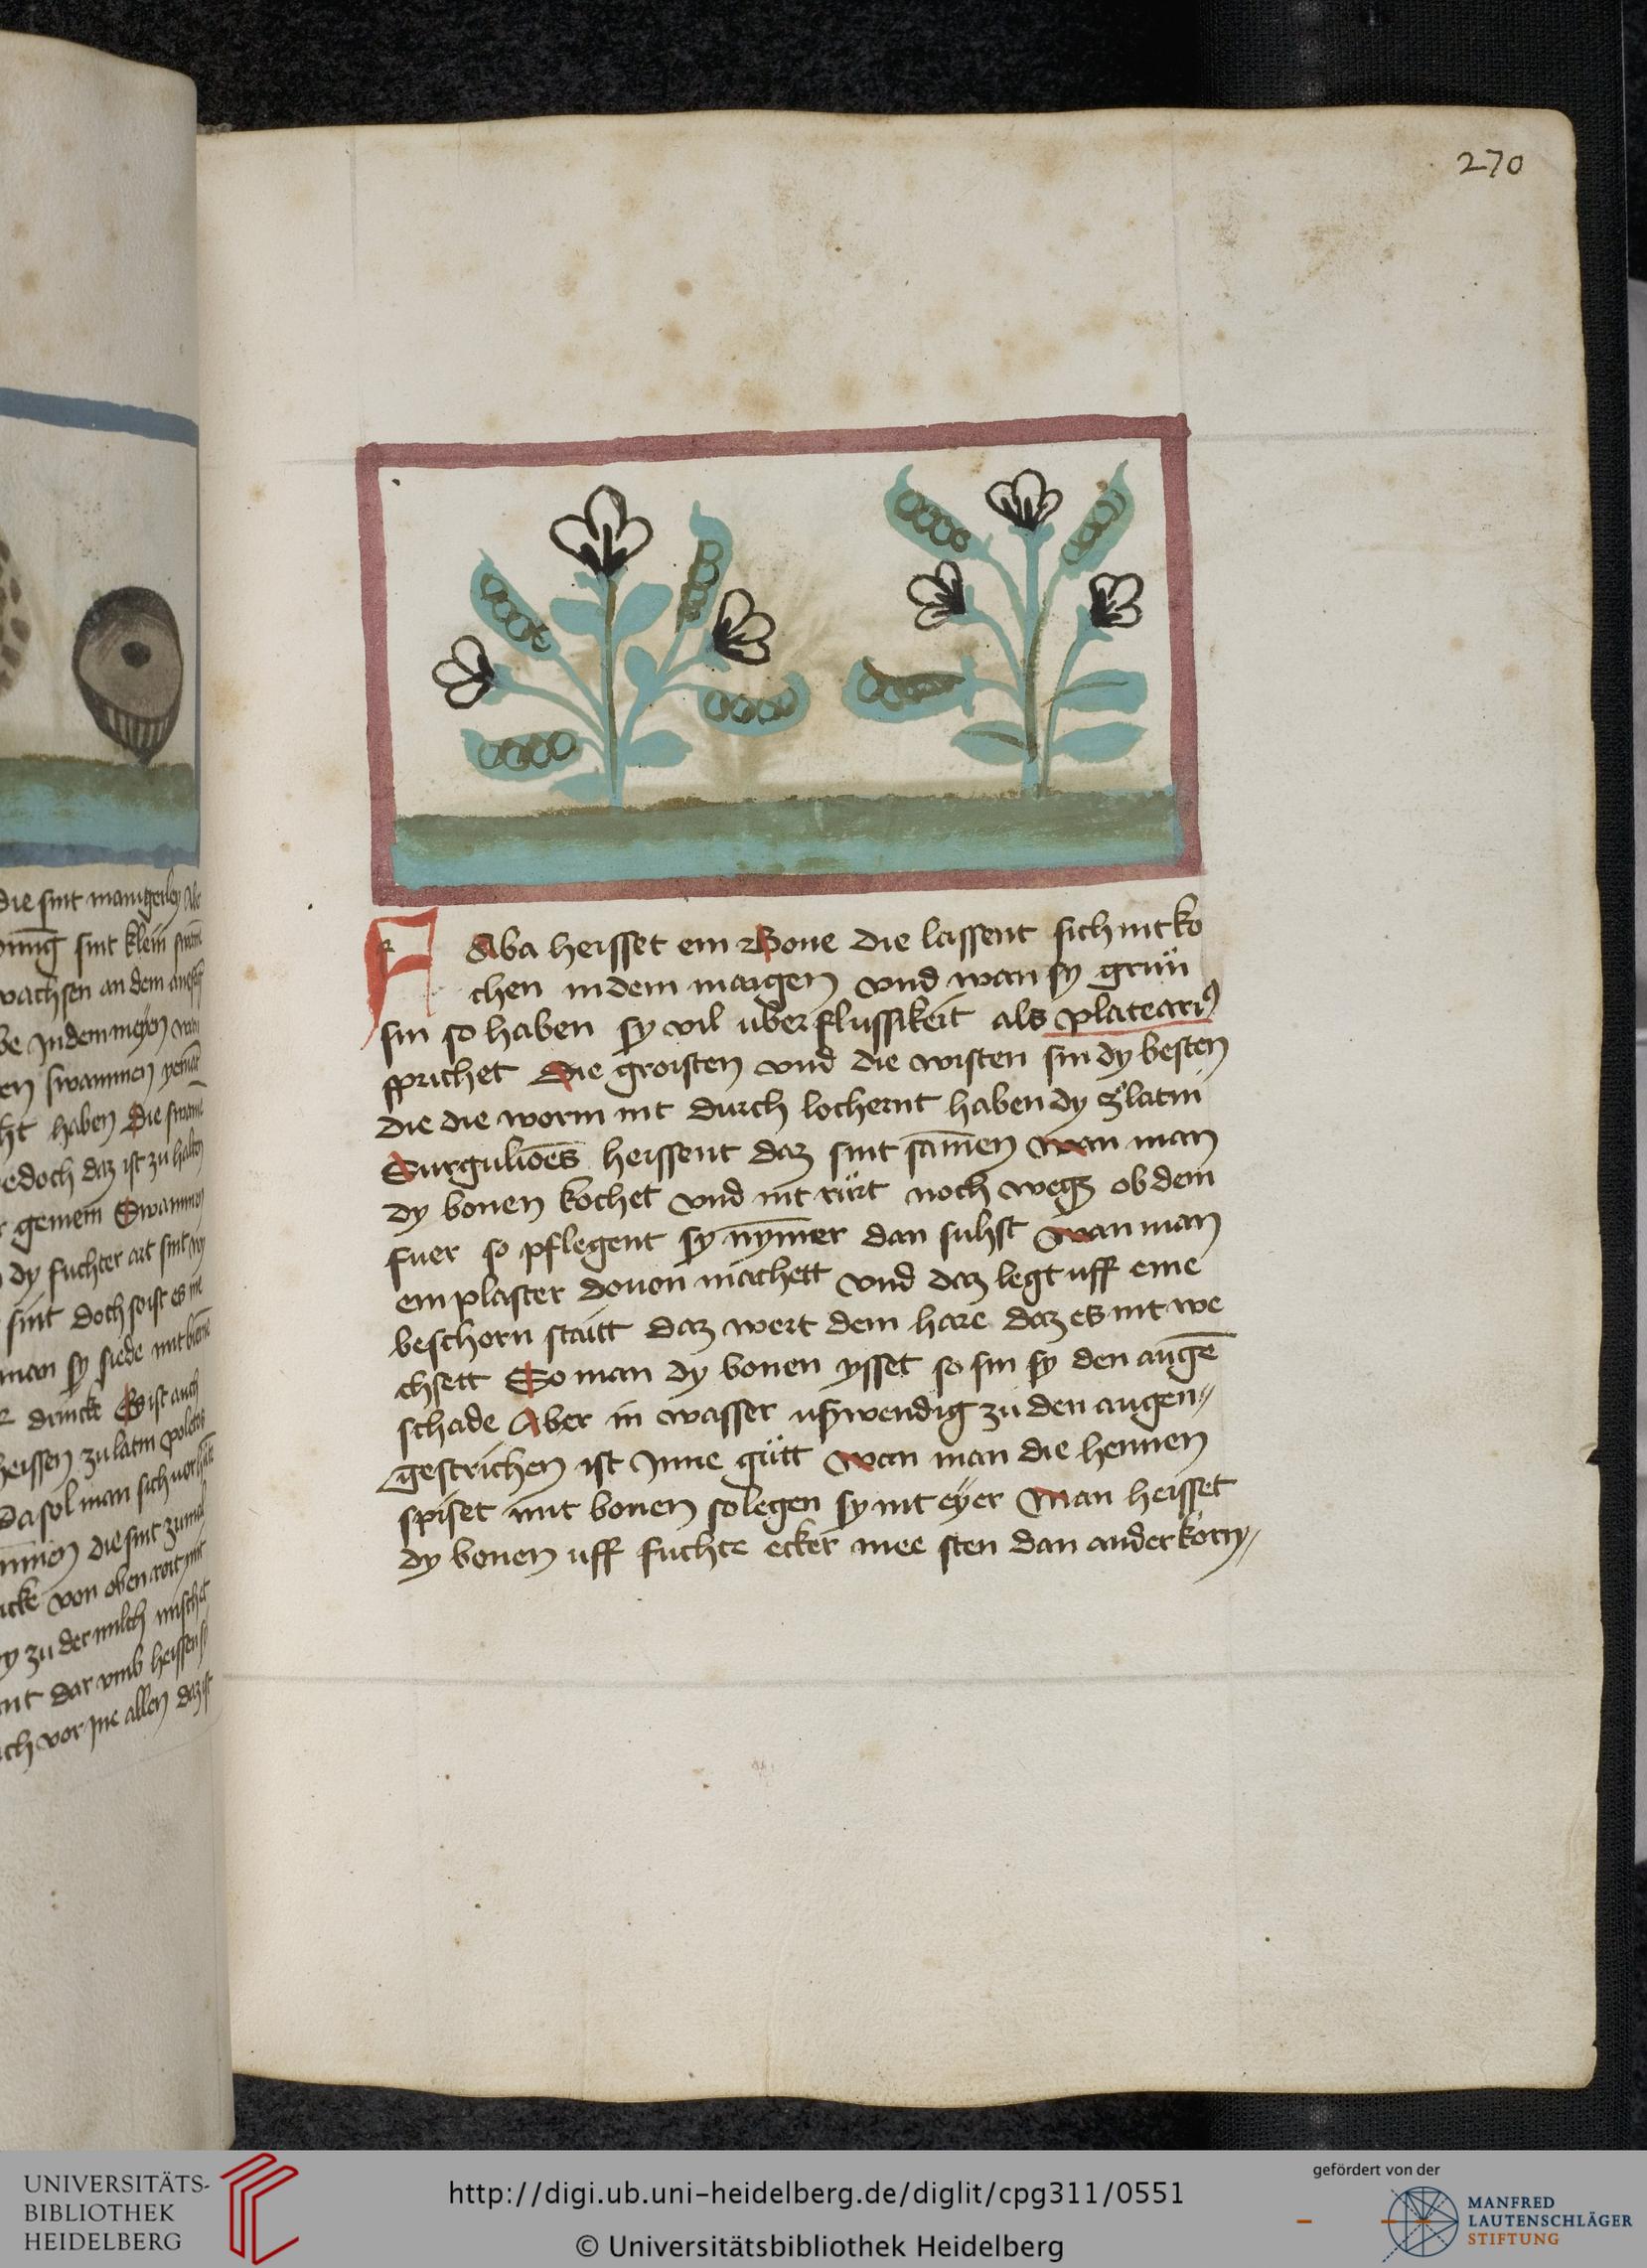 270
FAba heisset ein Bone die lassent sich nit ko
chen in dem maigen vnd wan sy grün
sin so haben sy vil uberflussikeit als plateari9
sprichet Die groisten vnd die wisten sin dy besten
die die worm nit durch lochernt haben dy zu latin
Gurgulioēs heissent daz sint samēn wan man
dy bonen kochet vnd nit rürt noch wegz ob dem
fuer so pflegent sy nÿmer dan suhst wan man
ein plaster douon machett vnd daz legt uff eine
beschorn staitt daz wert dem hare daz es nit we
chsett So man dy bonen ysset so sin sy den augē
schade Aber in wasser ußwendig zu den augen
gestrichen ist Inne gütt wan man die hennen
spiset mit bonen so legen sy nit eyer Man heisset
dy bonen uff fuchte ecker mee sten dan ander korn
die sint manigerley
sint klein
wachsen an dem
be In dem meyen
en swammen
ht haben Die
edoch daz ist zu halten
gemein Swammen
dy fuchter art sint
sint doch so ist es nit
man sy siede mit
drincke Es ist auch
heissen zu latin
Da sol man sich
die sint zumal
von oben rott mit
zu der milch mischet
dar vmb heissen
vor Ine allen daz ist
UNIVERSITÄTS-
BIBLIOTHEK
HEIDELBERG
http://digi.ub.uni-heidelberg.de/diglit/cpg311/0551
© Universitätsbibliothek Heidelberg
gefördert von der
MANFRED
LAUTENSCHLÄGER
STIFTUNG